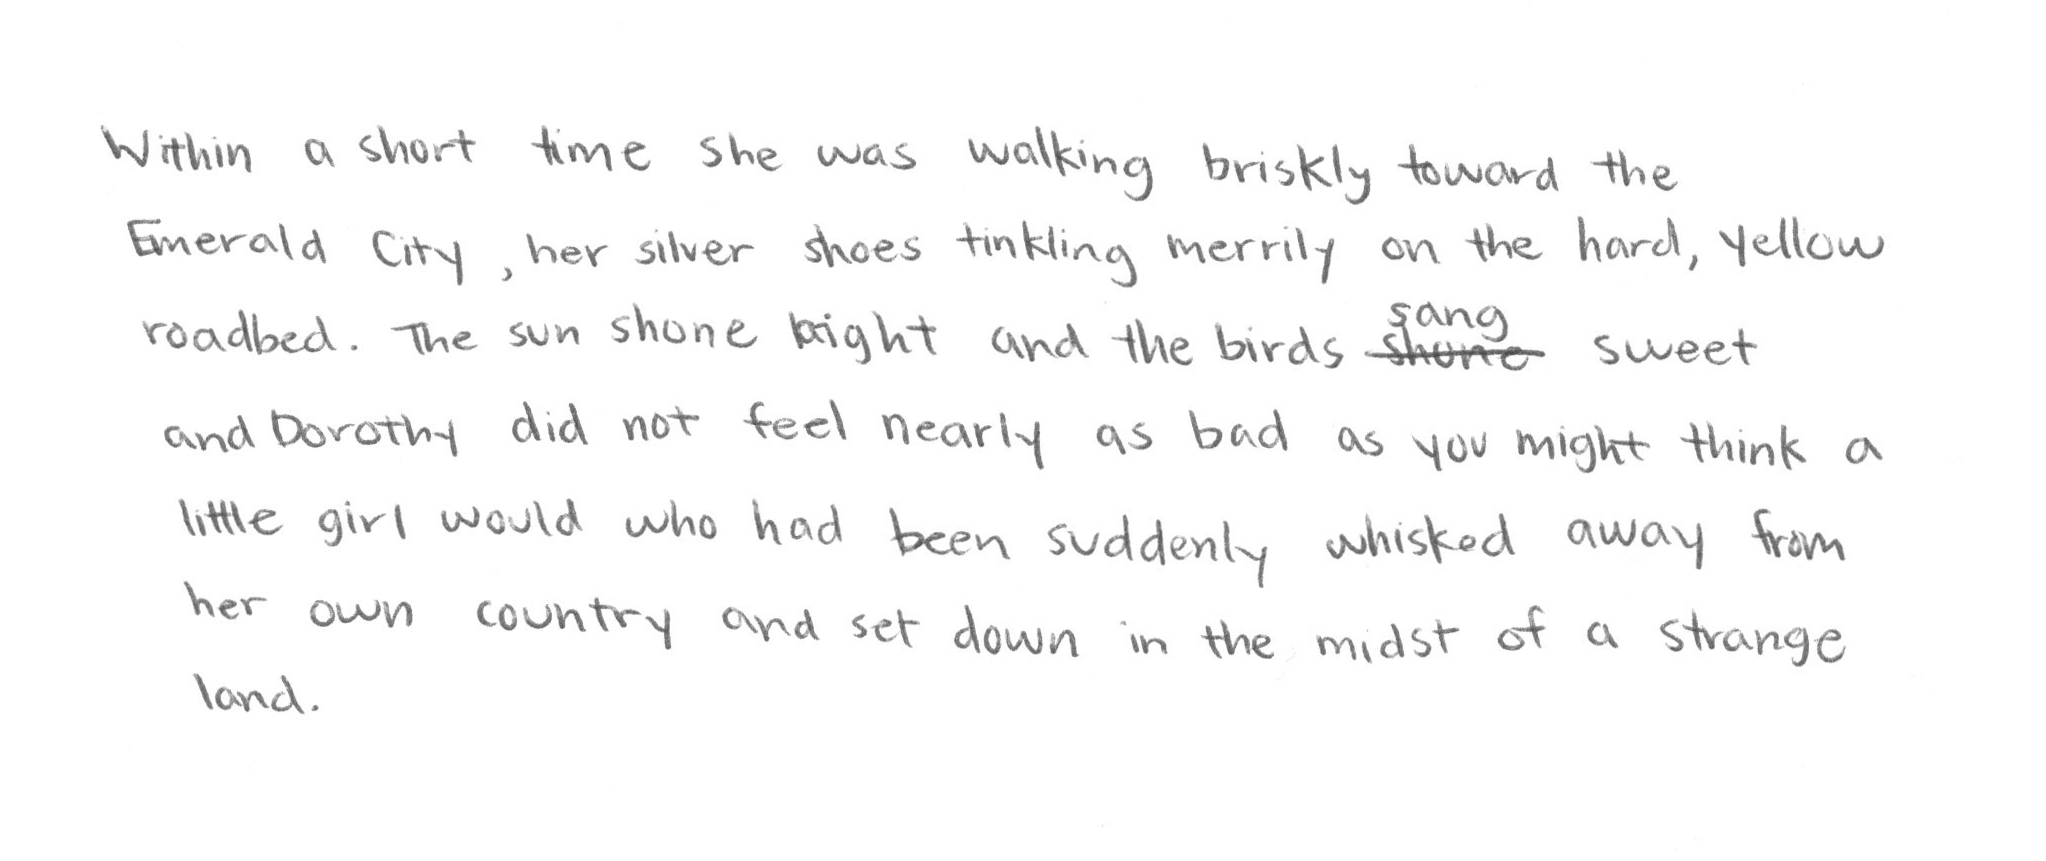 Within a short time she was walking briskly toward the
Emerald City, her silver shoes tinkling merrily on the hard, yellow
roadbed. The sun shone bright and the birds sang ~~shone~~ sweet
and Dorothy did not feel nearly as bad as you might think a
little girl would who had been suddenly whisked away from
her own country and set down in the midst of a strange
land.